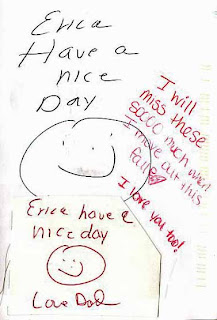 Erica
Have a
nice
Day
I will
miss these
SOOOO much when
I move out this
fall
I love you too!
Erica have a
nice day
Love Dad